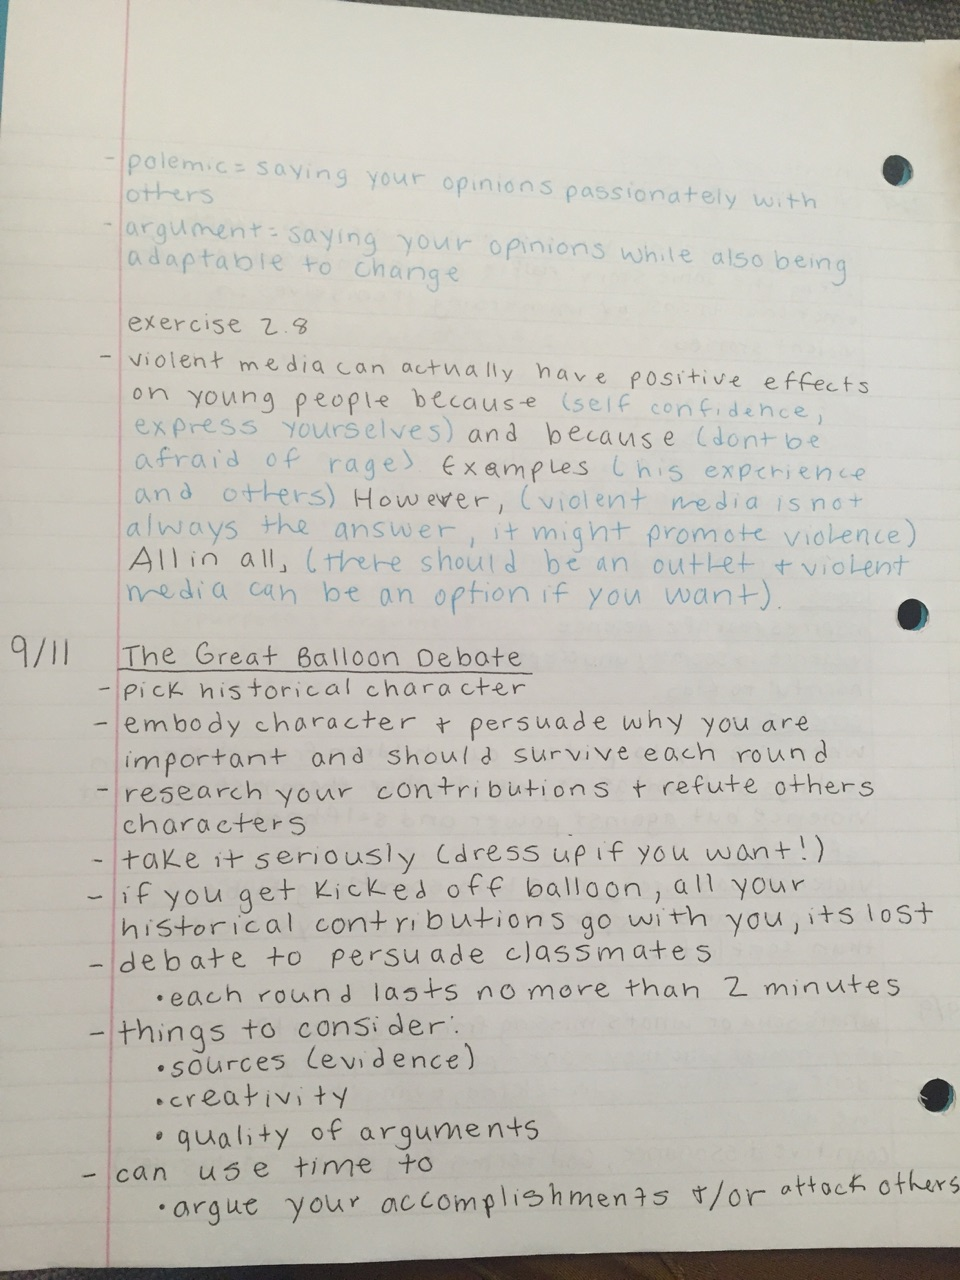 - polemic = saying your opinions passionately with
others
- argument = saying your opinions while also being
adaptable to change
exercise 2.8
- violent media can actually have positive effects
on young people because (self confidence,
express yourselves) and because (dont be
afraid of rage) Examples (his experience
and others) However, (violent media is not
always the answer, it might promote violence)
All in all, (there should be an outlet + violent
media can be an option if you want).
9/11 The Great Balloon Debate
- pick historical character
- embody character + persuade why you are
important and should survive each round
- research your contributions + refute others
characters
- take it seriously (dress up if you want!)
- if you get kicked off balloon, all your
historical contributions go with you, its lost
- debate to persuade classmates
• each round lasts no more than 2 minutes
- things to consider:
• sources (evidence)
• creativity
• quality of arguments
- can use time to
• argue your accomplishments +/or attack others